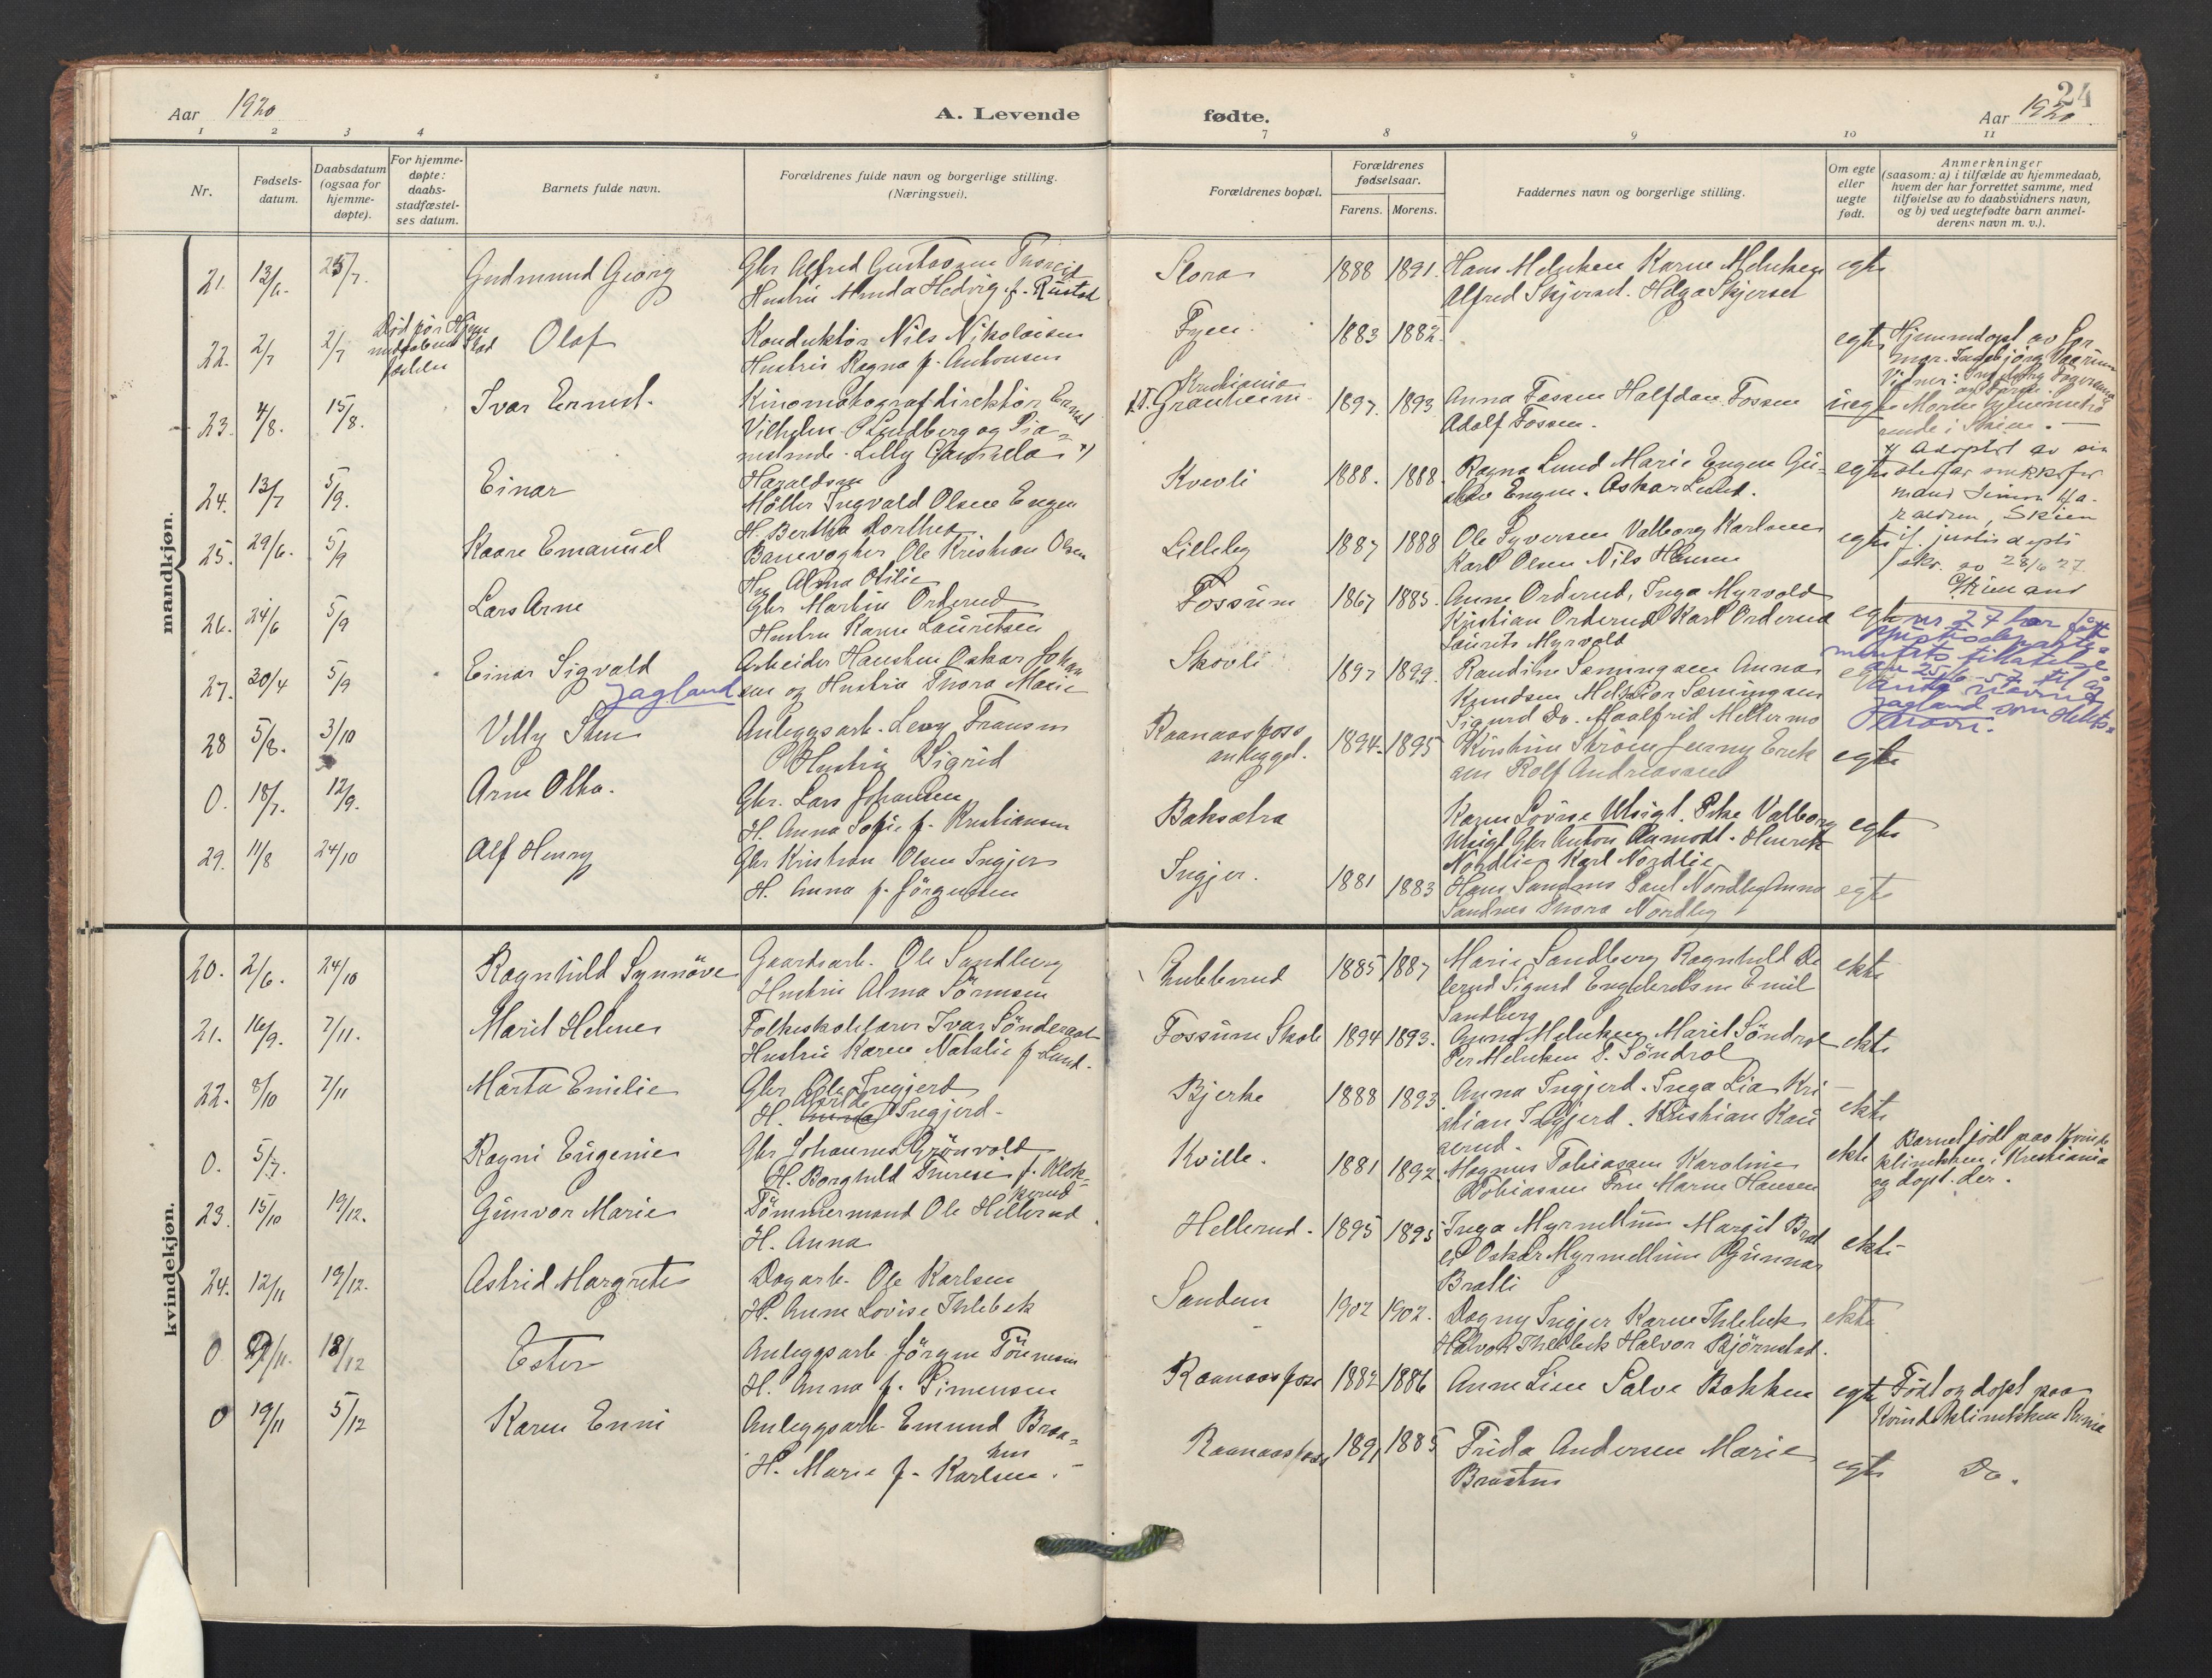 24
Aar 1920
A. Levende
fødte.
Aar 1920
1 2 3 4
7 8 9 10 11
Nr.
Fødsels-
datum.
Daabsdatum
(ogsaa for
hjemme-
døpte).
For hjemme-
døpte:
daabs-
stadfæstel-
ses datum.
Barnets fulde navn.
Forældrenes fulde navn og borgerlige stilling.
(Næringsvei).
Forældrenes bopæl.
Forældrenes
fødselsaar.
Farens. Morens.
Faddernes navn og borgerlige stilling.
Om egte
eller
uegte
født.
Anmerkninger
(saasom: a) i tilfælde av hjemmedaab,
hvem der har forrettet samme, med
tilføielse av to daabsvidners navn,
og b) ved uegtefødte barn anmel-
derens navn m. v.).
mandkjøn.
21. 13/6. 25/7. Gudmund Georg
Gbr Alfred Gustavsen
Hustru Hedvig f. Rustad
Slora 1888 1891. Hans Melnken Karen Melnken
Alfred Skjerset. Helga Skjerset
egte
22. 2/7 2/7 Olaf
Konduktör Nils Nikolaisen
Hustru Ragna f. Antonsen
1883 1882.
egte Hjemmedöpt av
23. 4/8. 15/8. Ivar Ernest.
Kinomatografdirektör Ernst
Vilhelm Lindberg og Pia-
nistinde Lilly Haraldsen
Kristiania
1897. 1893 Anna Fossen Halfdan Fossen
Adolf Fossen.
uegte
Adoptert av sin
Skien
28/6 27.
24. 13/7 5/9. Einar
Möller Ingvald Olsen Engen
H. Bertha Dorthea
Kvevli 1888. 1888. Ragna Lund Marie Engen Gu-
Engen. Oskar Lund.
egte
25. 29/6. 5/9 Kaare Emanuel
Banevogter Ole Kristian Olsen
H. Alma Otilie
Lilleby 1887 1888 Ole Syversen Valborg Karlsen
Karl Olsen Nils Hansen
egte
26. 24/6 5/9 Lars Arne
Gbr Martin Orderud
Hustru Karen Lauritsen
Fossum 1867 1885. Anne Orderud, Inga Myrvold
Kristian Orderud Karl Orderud
Laurits Myrvold
egte
27. 30/4 5/9 Einar Sigvald
Jagland
Arbeider Hansten Oskar Johan
sen og Hustru Thora Marie
Skovli 1897 1899. Randine Sæmingsen Anna
Knudsen Melkior Sæmingsen
Sigurd Do. Maalfrid Mellermo
nr 27 har fått
justisdeparte-
mentets tillatelse
av 25/6-57 til å
anta navnet
Jagland som slekts-
navn.
28 5/8. 3/10 Villy Sten
Anleggsarb. Levy Fransen
Hustru Sigrid
Raanaasfoss
anlegget. 1894. 1895 Kirstine Ström Jenny Erik
sen Rolf Andreassen
egte
0. 18/7. 12/9. Arne Otto.
Gbr. Lars Johansen
H. Anna Sofie f. Kristiansen
Baksætra
Karen Lovise Utsigt. Pike Valborg
Utsigt Gbr Anton Aamodt. Henrik
Nordlie Karl Nordlie
egte
29. 11/8 24/10 Alf Henry
Gbr Kristian Olsen Ingjer
H. Anna f. Jörgensen
Ingjer. 1881 1883 Hans Sandnes Paul Nordby Anna
Sandnes Thora Nordby
egte
kvindekjøn.
20. 2/6. 24/10 Ragnhild Synnöve
Gaardsarb. Ole Sandberg
Hustru Alma Sörensen
1885 1887 Marie Sandberg Ragnhild
Sigurd Engebretsen Emil
Sandberg
ekte
21. 16/9. 7/11. Marit Helene
Folkeskolelærer Ivar Sönderaal
Hustru Karen Natalie f Lund.
Fossum Skole 1894 1893. Anna Melnken Marit Söndrol
Per Melnken P. Söndrol
ekte
22. 8/10 7/11 Marta Emilie
Gbr Ole Ingjerd
H. Ingjerd
Bjerke 1888 1893 Anna Ingjerd. Inga Lia Kri-
stian Ingjerd. Kristian
ekte
0. 5/7. Ragni Eugenie
Gbr Johannes Grönvold
H. Borghild Therese f. Klok-
kerud
Kville. 1881 1892. Magnus Tobiassen Karoline
Tobiassen Maren Hansen
ekte Barnet födt paa Kvinde
klinikken i Kristiania
og döpt der.
23. 15/10 19/12. Gunvor Marie
Tömmermand Ole Hellerud
H. Anna
Hellerud. 1895 1895 Inga Myrmellum Margit Brat
li Oskar Myrmellum Gunnar
Bratli
ekte
24. 12/11 19/12. Astrid Margrete
Dagarb. Ole Karlsen
H. Anne Lovise Ihlebek
Sanden 1902 1902. Dagny Ingjer Karen Ihlebek
Halvor Ihlebek Halvor Björnstad.
ekte
0 /11. 18/12 Ester
Anleggsarb Jörgen Tönnesen
H. Anna f. Simensen
Raanaasfoss 1882 1886 Anne Lise Salve Bakken
egte Födt og döpt paa
Kvindeklinikken Kr.nia
0 19/11 5/12 Karen Enni
Anleggsarb Emund Braa-
ten
H. Marie f. Karlsen.
Raanaasfoss 1891 1885 Frida Andersen Marie
Braaten
egte Do.